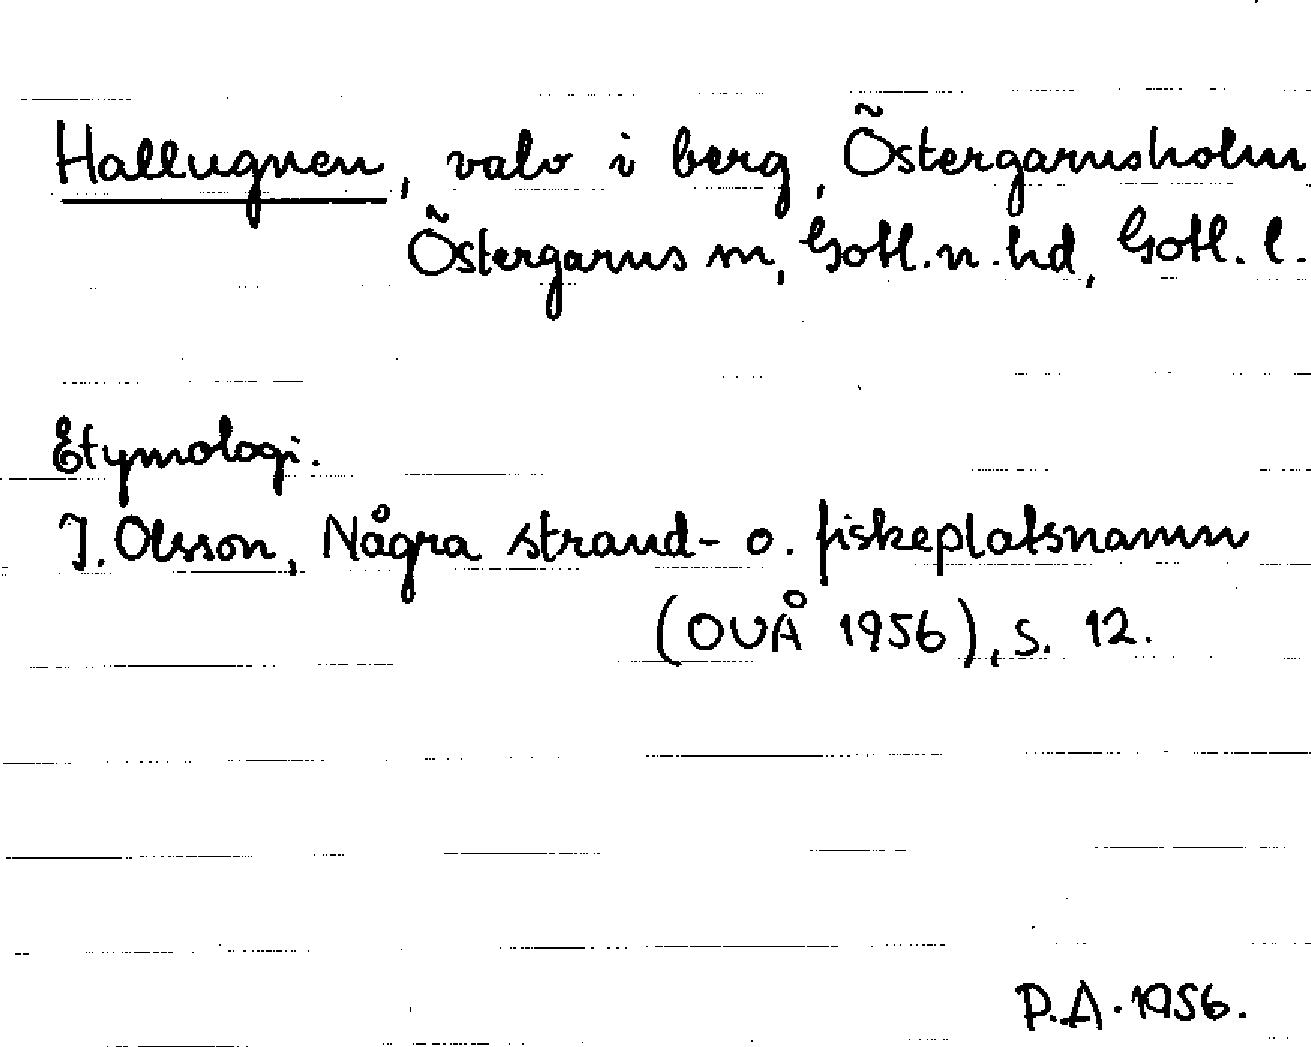 Hallugnen, valv i berg, Östergarnsholm
Östergarns sn, Gotl. n. hd, Gotl. l.
Etymologi.
I. Olsson, Några strand- o. fiskeplatsnamn
(OUÅ 1956), s. 12.
P.A. 1956.